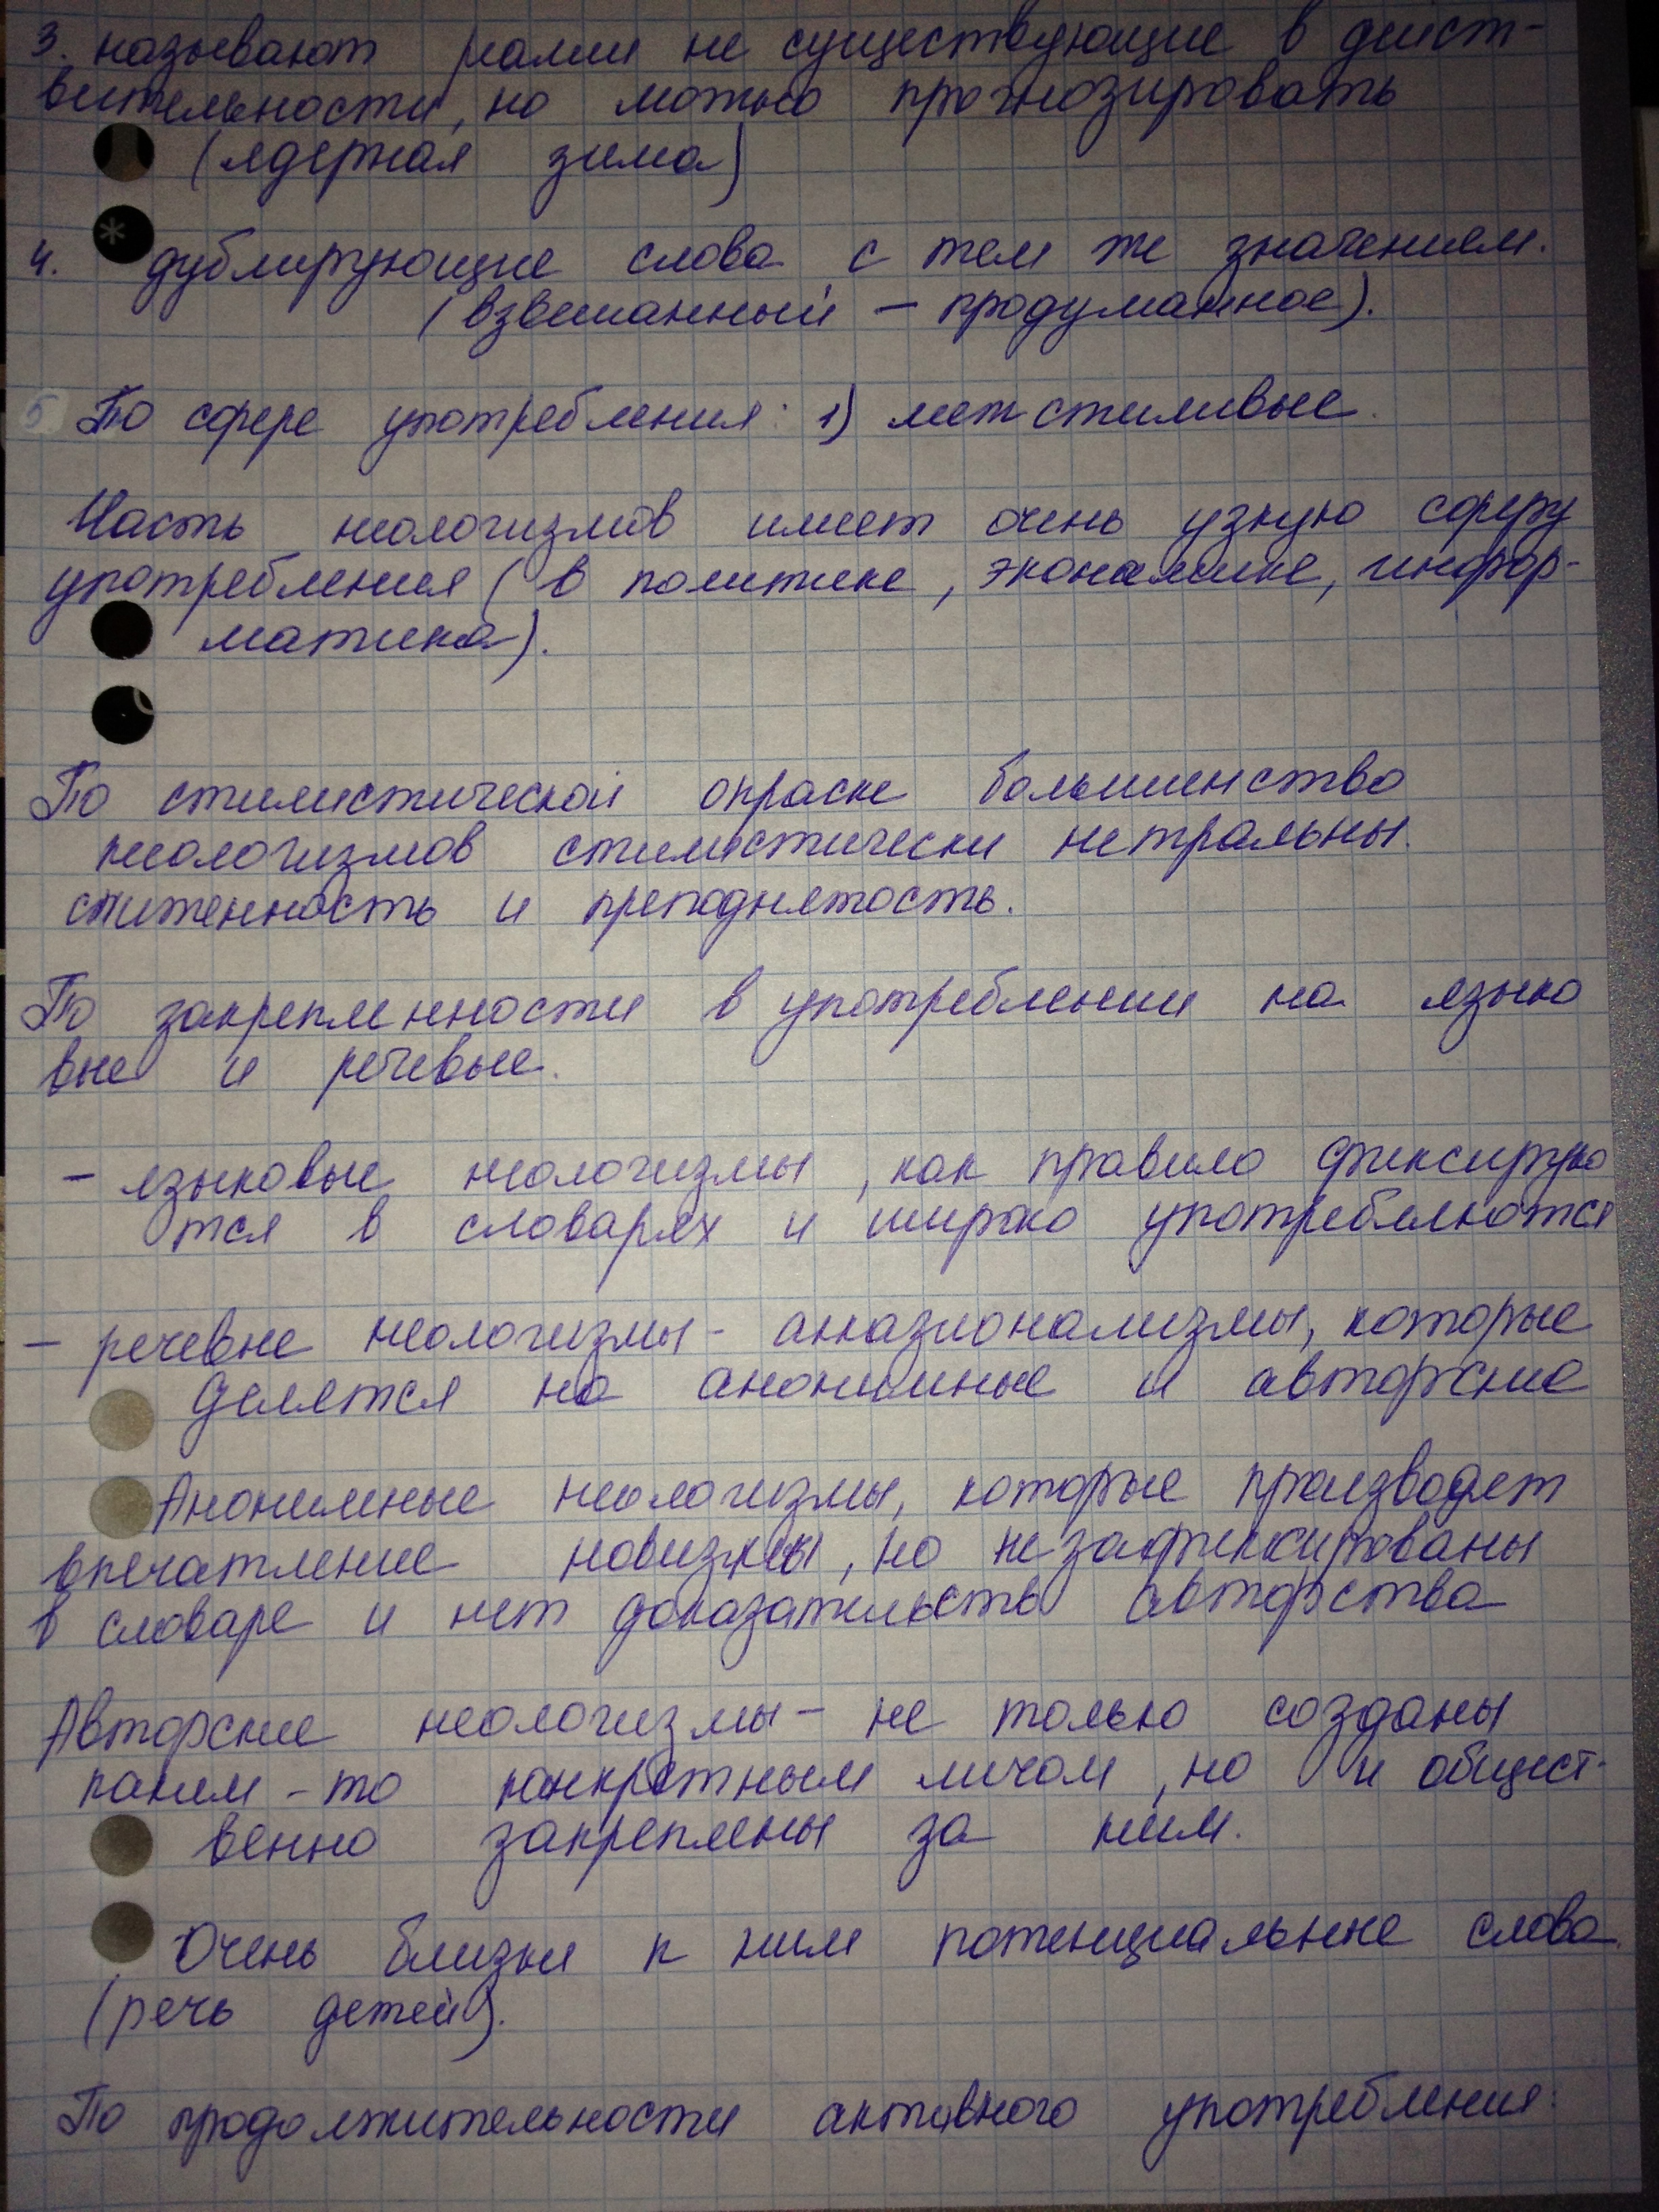 3. называют реалии не существующие в дейст-
вительности, но можно прогнозировать
(ядерная зима)
4. дублирующие слова с тем же значением.
(взвешанный – продуманное).
5 По сфере употребления: 1) межстилевые.
Часть неологизмов имеет очень узкую сферу
употребления (в политике, экономике, инфор-
матика).
По стилистической окраске большинство
неологизмов стилистически нетральны.
сниженность и преподнятость.
По закрепленности в употреблении на языко
вые и речевые.
– языковые неологизмы, как правило фиксирую
тся в словарях и широко употребляются
– речевые неологизмы – акказионализмы, которые
делятся на анонимные и авторские
Анонимные неологизмы, которые производят
впечатление новизны, но не зафиксированы
в словаре и нет доказательств авторства
Авторские неологизмы – не только созданы
каким-то конкретным личом, но и общест-
венно закреплены за ним.
Очень близки к ним потенциальные слова
(речь детей).
По продолжительности активного употребления: